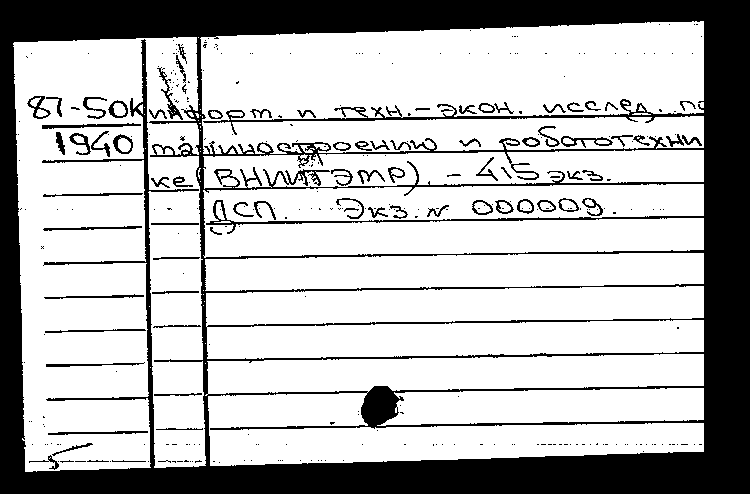 87-50К информ. и техн.-экон. исслед. по
1940 машиностроению и робототехни
ке (ВНИИТЭМР). - 415 экз.
ДСП. Экз. № 000009.
5